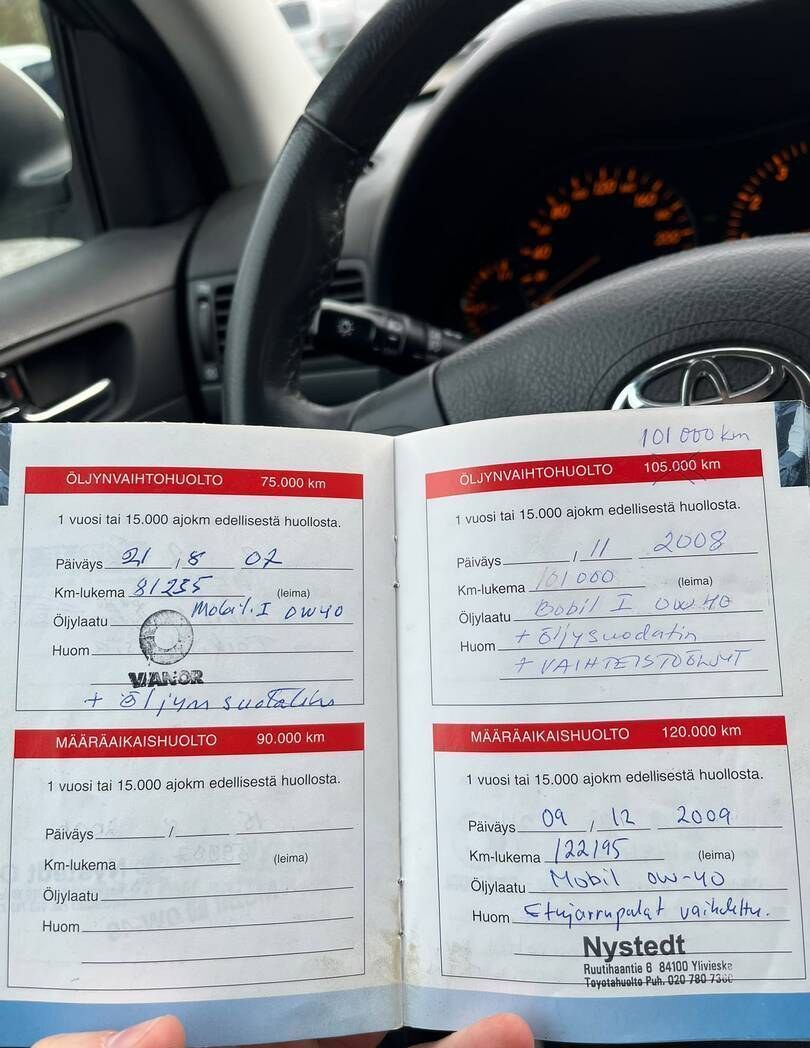 ÖLJYNVAIHTOHUOLTO 75.000 km
1 vuosi tai 15.000 ajokm edellisestä huollosta.
Päiväys 21 , 8 07
Km-lukema 81235 (leima)
Öljylaatu Mobil. I 0W40
Huom
VIANOR
+ öljyn suotatin
MÄÄRÄAIKAISHUOLTO 90.000 km
1 vuosi tai 15.000 ajokm edellisestä huollosta.
Päiväys /
Km-lukema (leima)
Öljylaatu
Huom
101 000 km
ÖLJYNVAIHTOHUOLTO 105.000 km
1 vuosi tai 15.000 ajokm edellisestä huollosta.
Päiväys , 11 2008
Km-lukema 101000 (leima)
Öljylaatu Bobil I 0W40
Huom + öljysuodatin
+ VAIHTEISTOÖLJYT
MÄÄRÄAIKAISHUOLTO 120.000 km
1 vuosi tai 15.000 ajokm edellisestä huollosta.
Päiväys 09 , 12 2009
Km-lukema 122195 (leima)
Öljylaatu Mobil 0W-40
Huom Etujarrupalat vaihdettu.
Nystedt
Ruutihaantie 6 84100 Ylivieska
Toyotahuolto Puh. 020 780